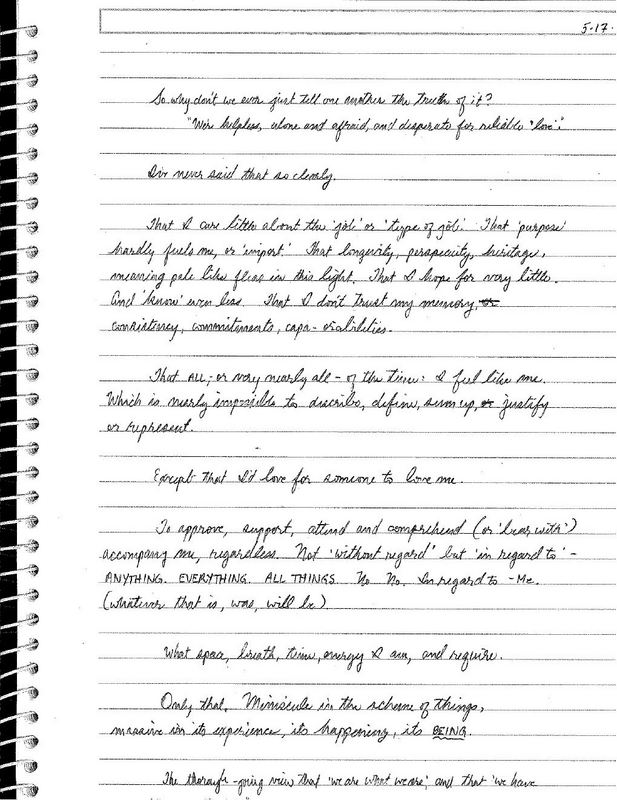 5.17.
So why don't we ever just tell one another the truth of it?
"We're helpless, alone and afraid, and desperate for reliable "love".
I've never said that so clearly.
That I care little about the 'job' or 'type of job'. That 'purpose'
hardly fuels me, or 'import.' That longevity, perspecuity, heritage,
meaning pale like fleas in this light. That I hope for very little.
And 'know' even less. That I don't trust my memory, or
consistency, commitments, capa- or abilities.
That ALL, or very nearly all - of the time: I feel like me.
Which is nearly impossible to describe, define, sum up, or justify
or represent.
Except that I'd love for someone to love me.
To approve, support, attend and comprehend (or 'bear with')
accompany me, regardless. Not 'without regard' but 'in regard to' -
ANYTHING. EVERYTHING. ALL THINGS. No. No. In regard to - Me.
(whatever that is, was, will be)
What space, breath, time, energy I am, and require.
Only that. Miniscule in the scheme of things,
massive in its experience, its happening, its BEING
The thorough-going view that 'we are what we are,' and that 'we have